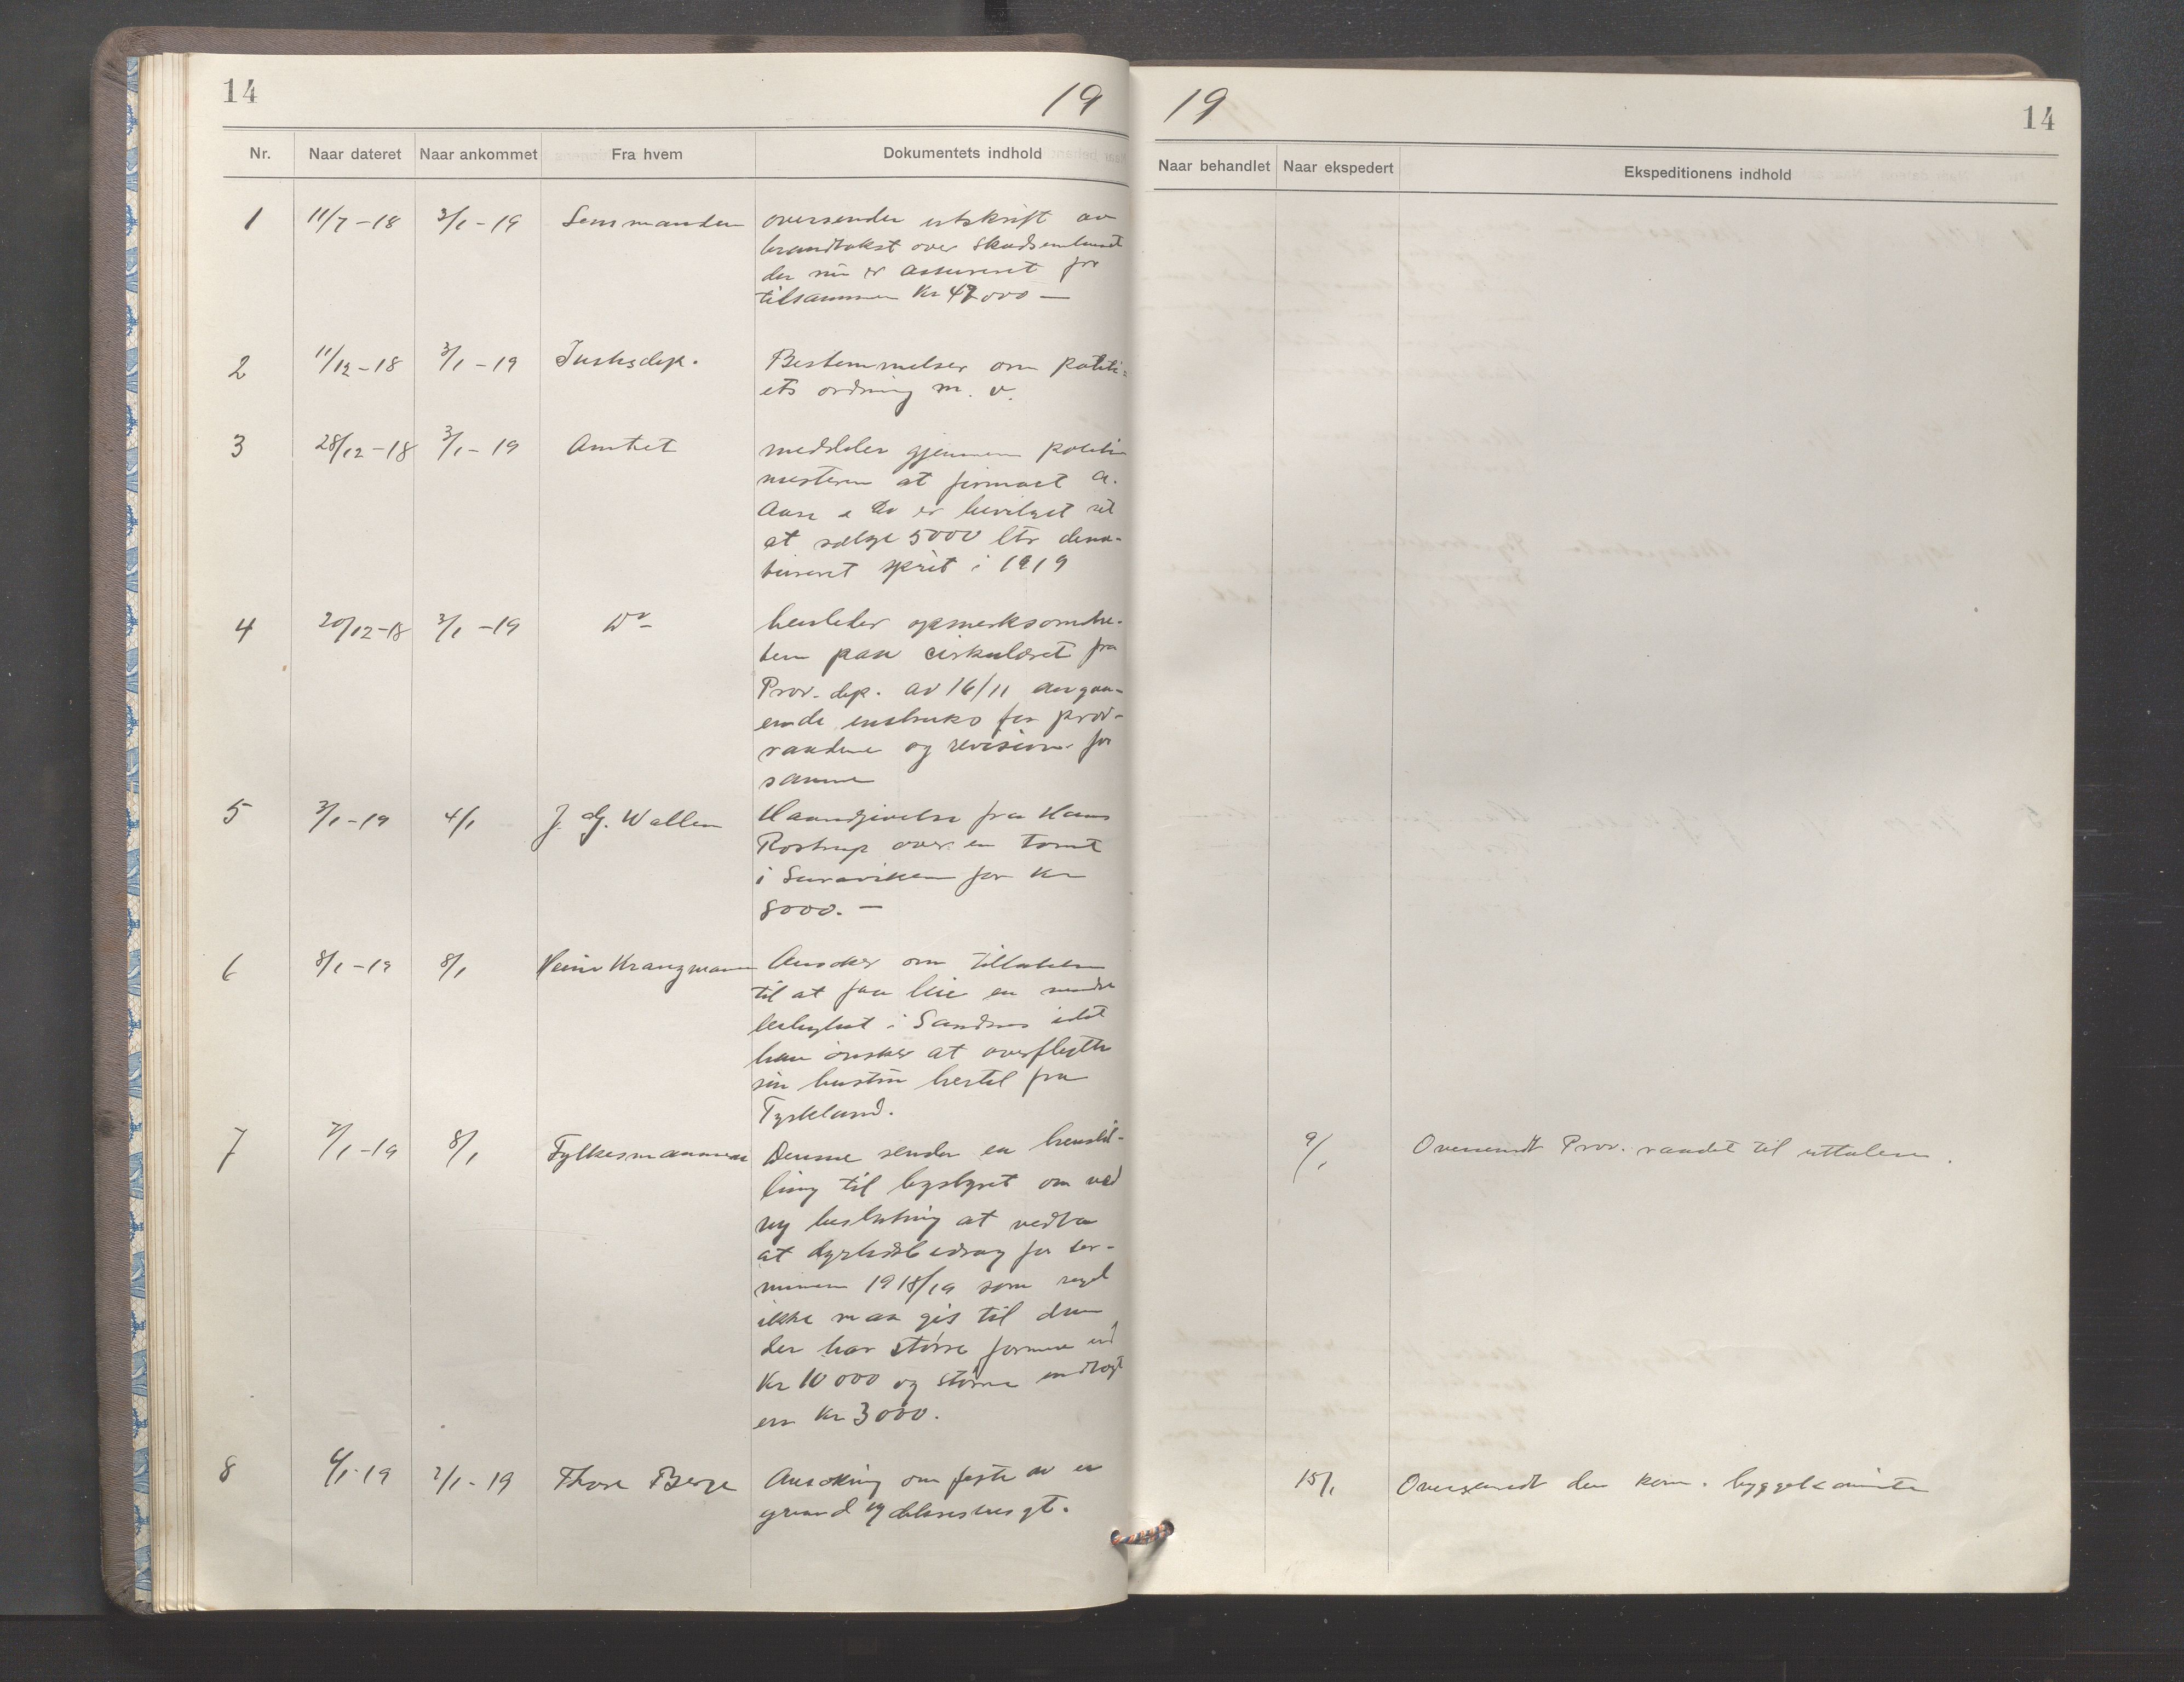 14
19
Nr. Naar dateret Naar ankommet Fra hvem Dokumentets indhold
1 11/7-18 3/1-19 Lensmanden oversender utskrift av
brandtakst over
der nu er assureret for
tilsammen Kr 47000 —
2 11/12-18 3/1-19 Justisdep. Bestemmelser om politi-
ets ordning m. v.
3 28/12-18 3/1-19 Amtet meddeler gjennem politi
mesteren at firmaet A.
Aase & Co er bevilget ret
at sælge 5000 ltr dena-
tureret sprit i 1919
4 20/12-18 3/1-19 Do henleder opmerksomhe-
ten paa cirkulæret fra
Prov. dep. av 16/11 angaa-
ende instruks for prov-
raadene og revision for
samme
5 3/1-19 4/1 J. G. Wallem Haandgivelse fra Hans
Rostrup over en tomt
i for Kr
8000. —
6 8/1-19 8/1 Heinr Kranzmann Ansøker om tillatelse
til at faa leie en mindre
leilighet i Sandnes idet
han ønsker at overflytte
sin hustru hertil fra
Tyskland.
7 7/1-19 8/1 Fylkesmannen Denne sender en henstil-
ling til bystyret om ved
ny beslutning at vedta
at dyrtidsbidrag for ter-
minen 1918/19 som regel
ikke maa gis til dem
der har større formue end
Kr 10000 og større indtægt
en Kr 3000.
8 6/1-19 7/1-19 Thore Berge Ansøkning om feste av en
grund
19
14
Naar behandlet Naar ekspedert Ekspeditionens indhold
9/1 Oversendt Prov. raadet til uttalelse.
15/1 Oversendt den kom. byggekomite